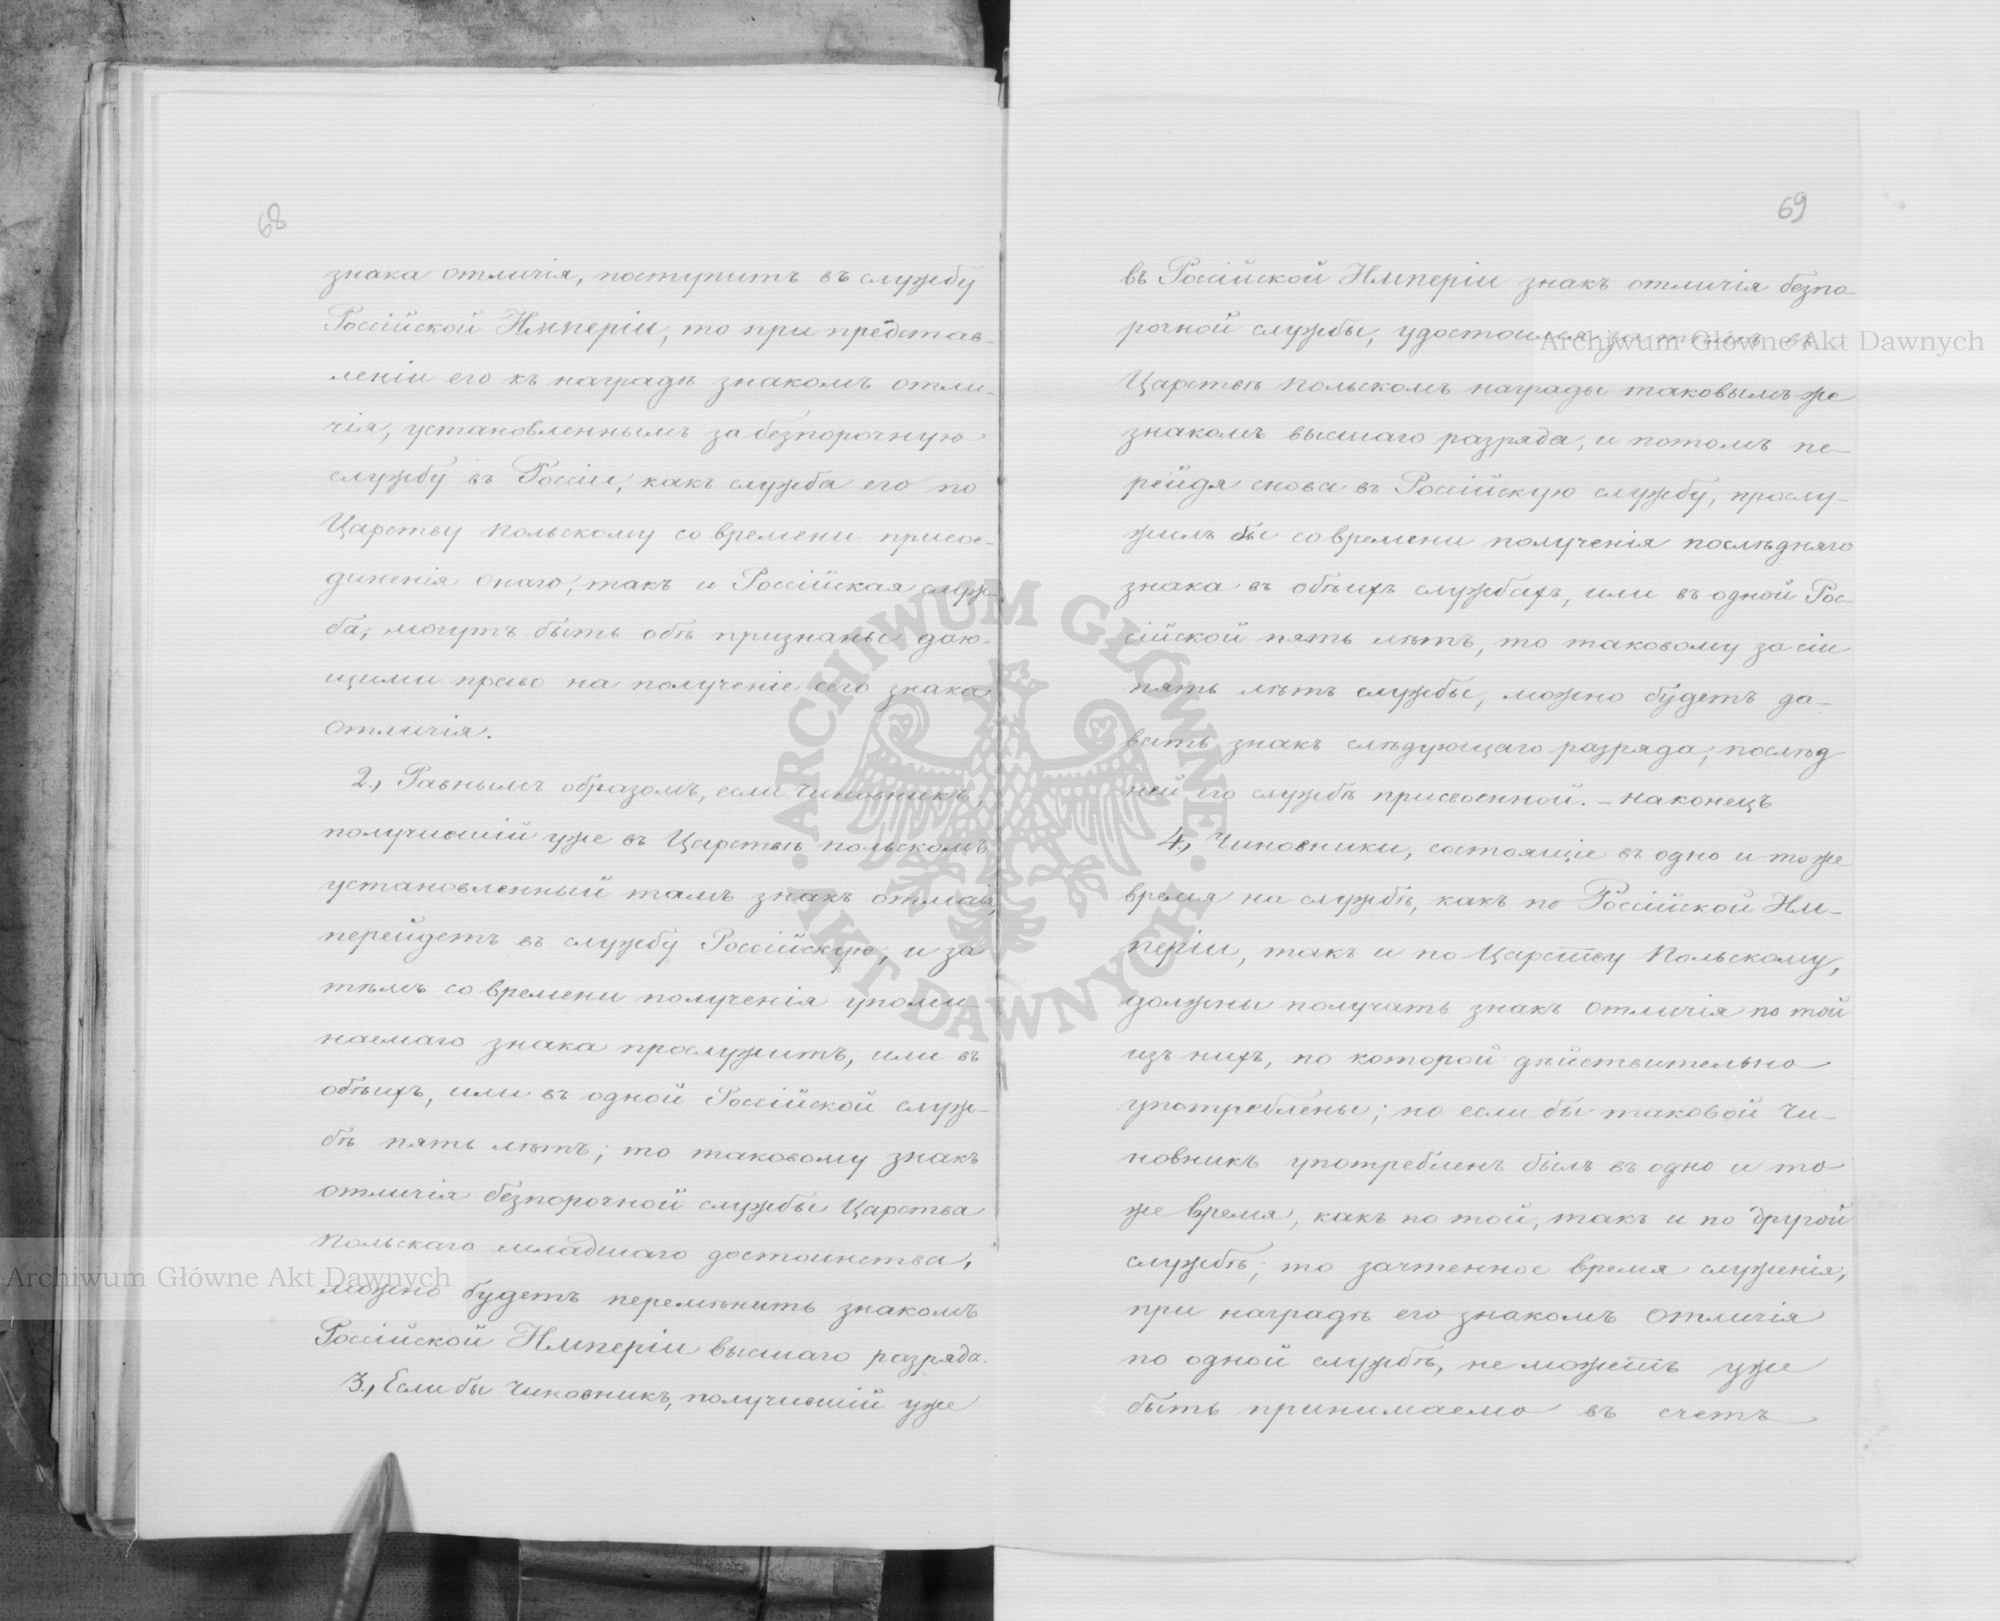 68
знака отличія, поступитъ въ службу
Россійской Имперіи, то при представ-
леніи его къ наградѣ знакомъ отли-
чія, установленнымъ за безпорочную
службу въ Россіи, какъ служба его по
Царству Польскому со времени присое-
диненія онаго, такъ и Россійская служ-
ба, могутъ быть обѣ признаны даю-
щими право на полученіе сего знака
отличія.
2., Равнымъ образомъ, если чиновникъ,
получившій уже въ Царствѣ Польскомъ
установленный тамъ знакъ отличія,
перейдетъ въ службу Россійскую, и за
тѣмъ со времени полученія упоми-
наемаго знака прослужитъ, или въ
обѣихъ, или въ одной Россійской служ-
бѣ пять лѣтъ; то таковому знакъ
отличія безпорочной службы Царства
Польскаго младшаго достоинства,
можно будетъ перемѣнить знакомъ
Россійской Имперіи высшаго разряда.
3., Если бы чиновникъ, получившій уже
69
въ Россійской Имперіи знакъ отличія безпо-
рочной службы, удостоился за тѣмъ въ
Царствѣ Польскомъ награды таковымъ же
знакомъ высшаго разряда, и потомъ пе-
рейдя снова въ Россійскую службу, прослу-
жилъ бы со времени полученія послѣдняго
знака въ обѣихъ службахъ, или въ одной Рос-
сійской пять лѣтъ, то таковому за сіи
пять лѣтъ службы, можно будетъ да-
вать знакъ слѣдующаго разряда, послѣд
ней его службѣ присвоенной. – Наконецъ
4., Чиновники, состоящіе въ одно и тоже
время на службѣ, какъ по Россійской Им-
періи, такъ и по Царству Польскому,
должны получать знакъ отличія по той
изъ нихъ, по которой дѣйствительно
употреблены; но если бы таковой чи-
новникъ употребленъ былъ въ одно и то
же время, какъ по той, такъ и по другой
службѣ; то зачтенное время служенія,
при наградѣ его знакомъ отличія
по одной службѣ, не можетъ уже
быть принимаемо въ счетъ
Archiwum Główne Akt Dawnych
Archiwum Główne Akt Dawnych
ARCHIWUM GŁÓWNE AKT DAWNYCH